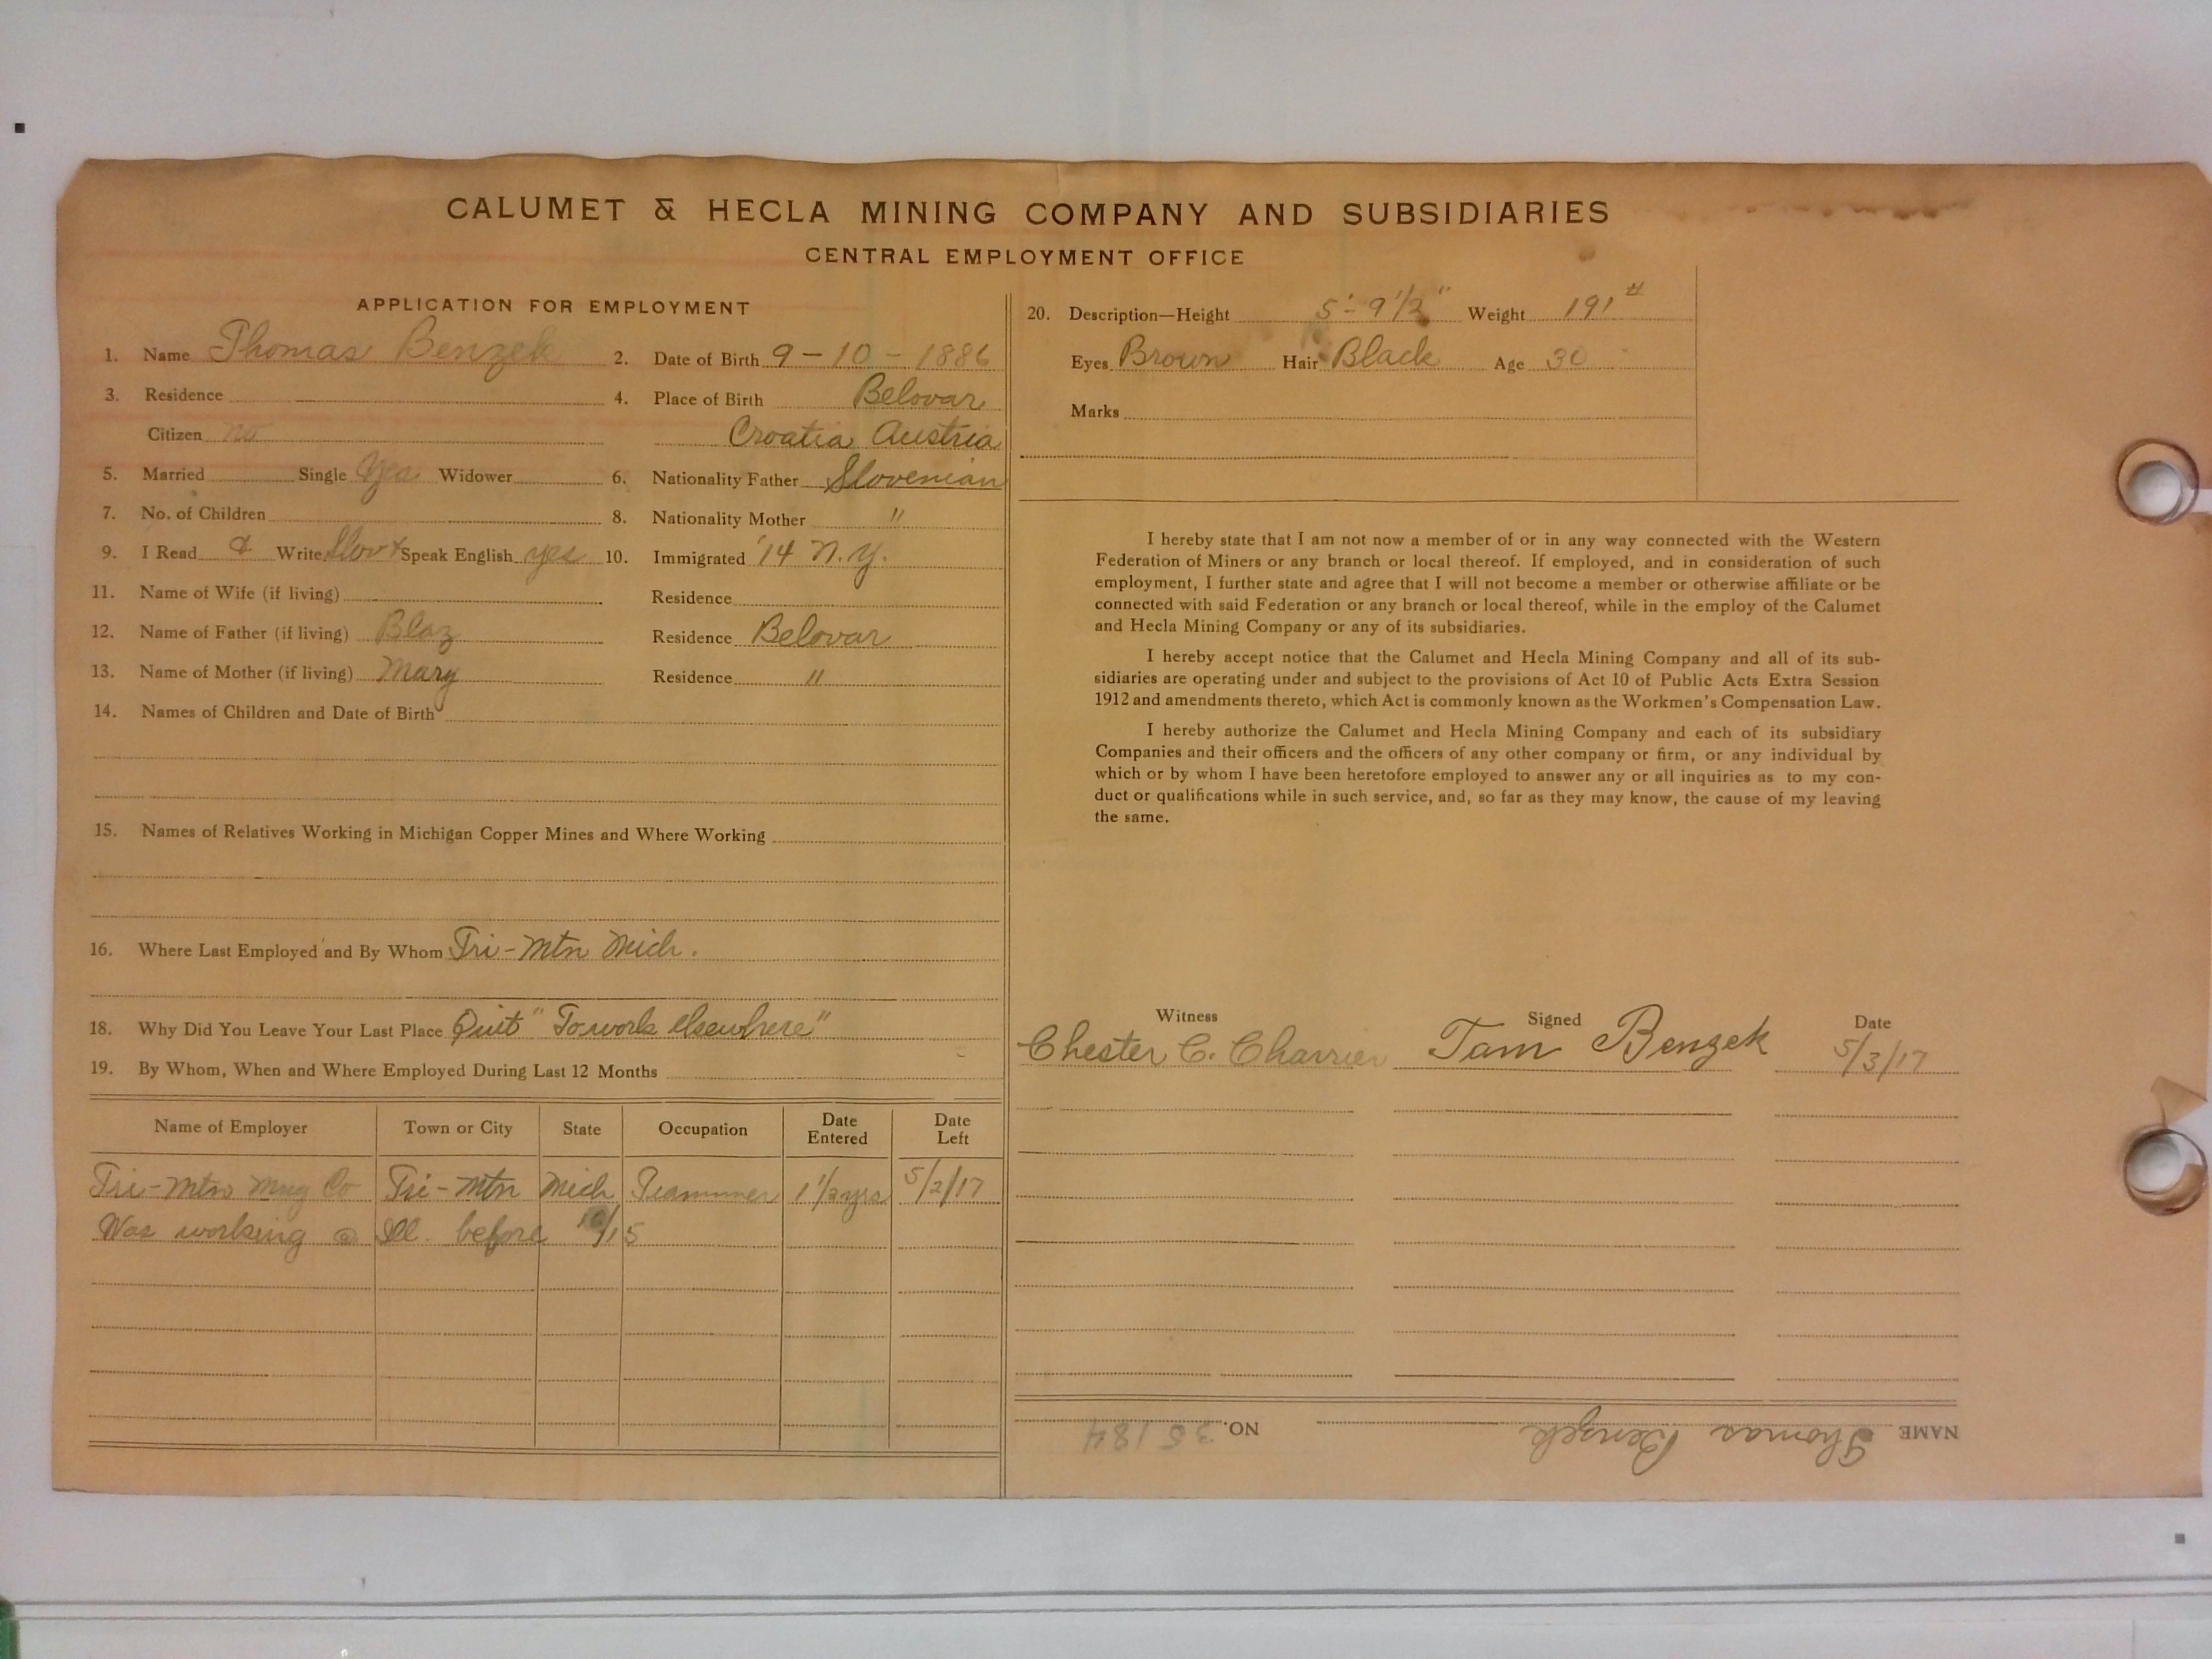 CALUMET & HECLA MINING COMPANY AND SUBSIDIARIES
CENTRAL EMPLOYMENT OFFICE
APPLICATION FOR EMPLOYMENT
1. Name Thomas Benzek 2. Date of Birth 9-10-1886
3. Residence 4. Place of Birth Belovar
Citizen no Croatia Austria
5. Married Single Yes Widower 6. Nationality Father Slovenian
7. No. of Children 8. Nationality Mother "
9. I Read & Write Slov & Speak English yes 10. Immigrated '14 N.Y.
11. Name of Wife (if living) Residence
12. Name of Father (if living) Blaz Residence Belovar
13. Name of Mother (if living) Mary Residence "
14. Names of Children and Date of Birth
15. Names of Relatives Working in Michigan Copper Mines and Where Working
16. Where Last Employed and By Whom Tri-Mtn Mich.
18. Why Did You Leave Your Last Place Quit "To work elsewhere"
19. By Whom, When and Where Employed During Last 12 Months
Name of Employer Town or City State Occupation Date Entered Date Left
Tri-Mtn Mng Co Tri-Mtn Mich 1 1/2 yrs 5/2/17
Was working @ Ill. before 10/15
20. Description—Height 5'-9 1/2" Weight 191#
Eyes Brown Hair Black Age 30
Marks
I hereby state that I am not now a member of or in any way connected with the Western
Federation of Miners or any branch or local thereof. If employed, and in consideration of such
employment, I further state and agree that I will not become a member or otherwise affiliate or be
connected with said Federation or any branch or local thereof, while in the employ of the Calumet
and Hecla Mining Company or any of its subsidiaries.
I hereby accept notice that the Calumet and Hecla Mining Company and all of its sub-
sidiaries are operating under and subject to the provisions of Act 10 of Public Acts Extra Session
1912 and amendments thereto, which Act is commonly known as the Workmen's Compensation Law.
I hereby authorize the Calumet and Hecla Mining Company and each of its subsidiary
Companies and their officers and the officers of any other company or firm, or any individual by
which or by whom I have been heretofore employed to answer any or all inquiries as to my con-
duct or qualifications while in such service, and, so far as they may know, the cause of my leaving
the same.
Witness Signed Date
Chester C. Charrier Tam Benzek 5/3/17
NAME Thomas Benzek NO. 35184